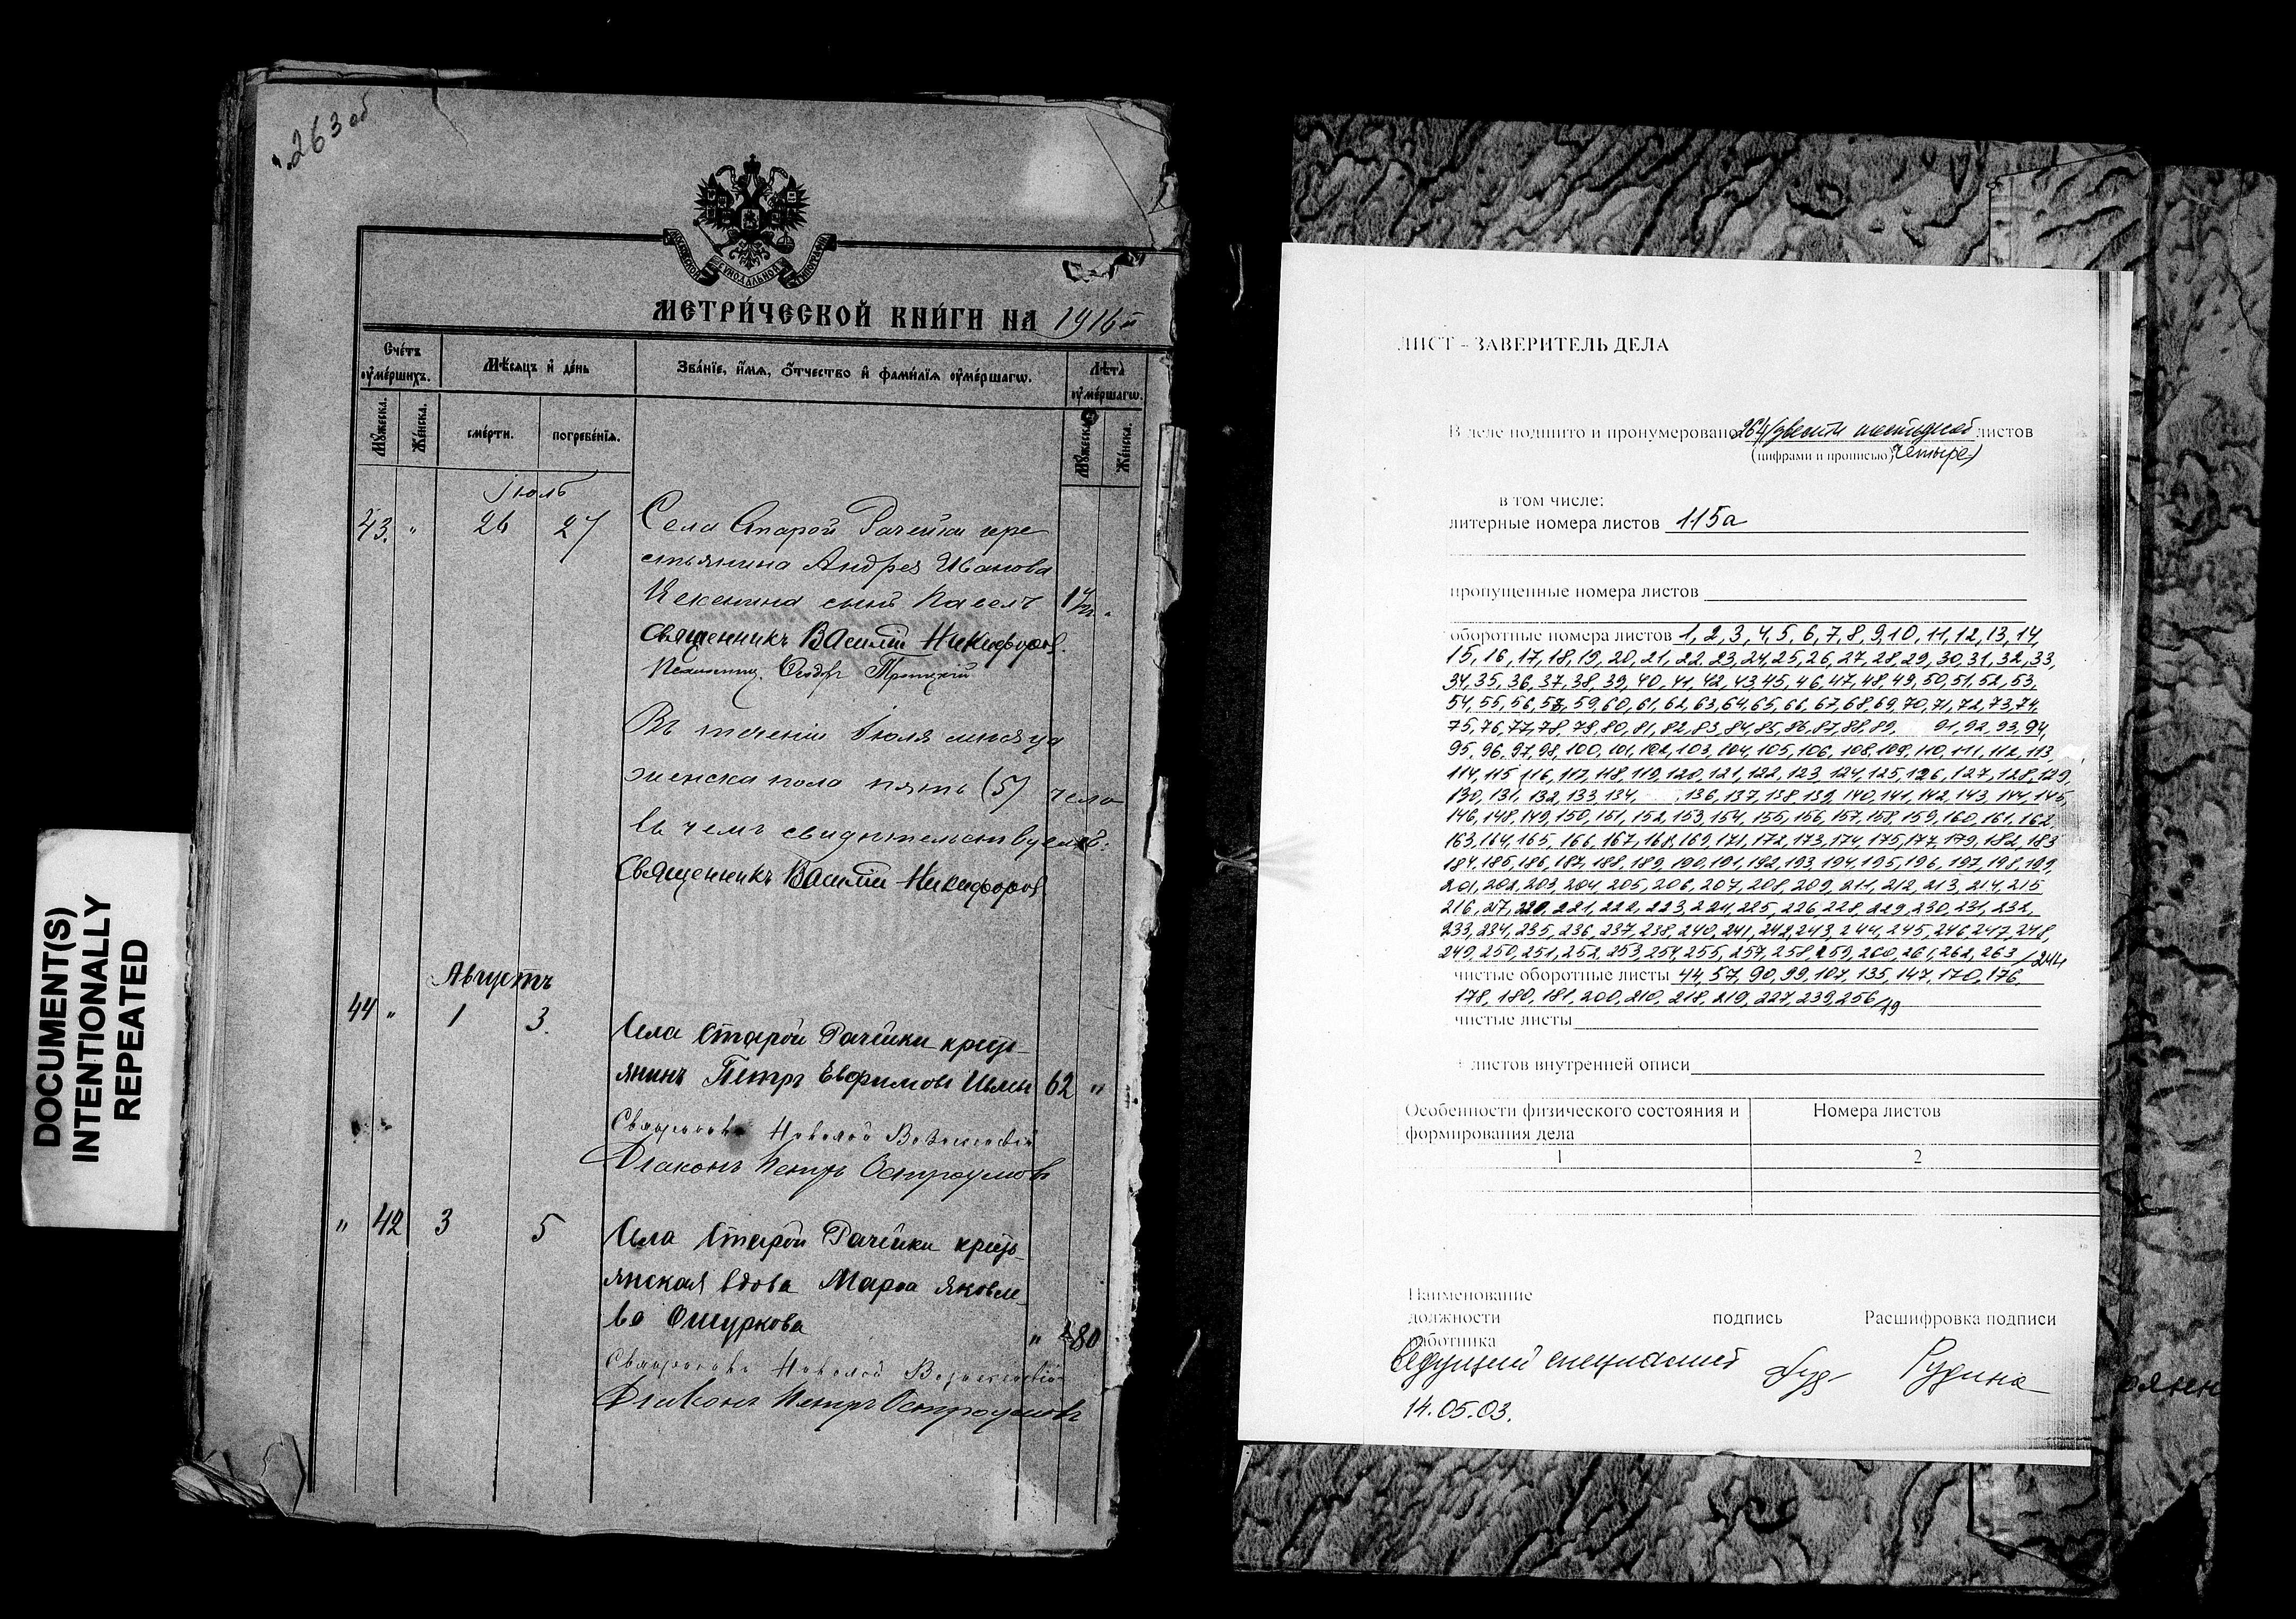 263 об
МОСКОВСКОЙ СѴНОДАЛЬНОЙ ТИПОГРАФІИ
МЕТРИ́ЧЕСКОЙ КНИ́ГИ НА 1916 й
Сче́тъ ᲂу҆ме́ршихъ.
Мѣ́сяцъ и҆ де́нь
Зва́нїе, и҆́мѧ, ѻ҆́тчество и҆ фами́лїѧ ᲂу҆ме́ршагѡ.
Лѣ́та ᲂу҆ме́ршагѡ.
Мꙋ́жеска.
Же́нска.
сме́рти.
погребе́нїѧ.
Мꙋ́жеска.
Же́нска.
Іюль
43. " 26 27 Села Старой Рачейки кре
стьянина Андрея Иванова
сынъ Павелъ
Священникъ Василій Никифоров.
Псаломщ. Ѳеодоръ Троицкій
Въ теченіи Іюля месяца
женска пола пять (5) чело
въ чемъ свидѣтельствуемъ:
Священникъ Василій Никифоров
Августъ
44 " 1 3. Села Старой Рачейки кресть-
янинъ Петръ Евфимовъ 62 "
Николай
Діаконъ Петръ Остроумовъ
" 42 3 5 Села Старой Рачейки кресть-
янская вдова Марѳа Яковле-
ва Ошуркова " 80
Николай
Діаконъ Петръ Остроумовъ
DOCUMENT(S)
INTENTIONALLY
REPEATED
ЛИСТ - ЗАВЕРИТЕЛЬ ДЕЛА
В деле подшито и пронумеровано 264 (двести шестьдесят листов
(цифрами и прописью) четыре)
в том числе:
литерные номера листов 115а
пропущенные номера листов
оборотные номера листов 1, 2, 3, 4, 5, 6, 7, 8, 9, 10, 11, 12, 13, 14
15, 16, 17, 18, 19, 20, 21, 22, 23, 24, 25, 26, 27, 28, 29, 30, 31, 32, 33,
34, 35, 36, 37, 38, 39, 40, 41, 42, 43, 45, 46, 47, 48, 49, 50, 51, 52, 53,
54, 55, 56, 58, 59, 60, 61, 62, 63, 64, 65, 66, 67, 68, 69, 70, 71, 72, 73, 74
75, 76, 77, 78, 79, 80, 81, 82, 83, 84, 85, 86, 87, 88, 89, 91, 92, 93, 94,
95, 96, 97, 98, 100, 101, 102, 103, 104, 105, 106, 108, 109, 110, 111, 112, 113,
114, 115, 116, 117, 118, 119, 120, 121, 122, 123, 124, 125, 126, 127, 128, 129,
130, 131, 132, 133, 134, , 136, 137, 138, 139, 140, 141, 142, 143, 144, 145,
146, 148, 149, 150, 151, 152, 153, 154, 155, 156, 157, 158, 159, 160, 161, 162,
163, 164, 165, 166, 167, 168, 169, 171, 172, 173, 174, 175, 177, 179, 182, 183
184, 185, 186, 187, 188, 189, 190, 191, 192, 193, 194, 195, 196, 197, 198, 199,
201, 202, 203, 204, 205, 206, 207, 208, 209, 211, 212, 213, 214, 215
216, 217, 220, 221, 222, 223, 224, 225, 226, 228, 229, 230, 231, 232,
233, 234, 235, 236, 237, 238, 240, 241, 242, 243, 244, 245, 246, 247, 248,
249, 250, 251, 252, 253, 254, 255, 257, 258, 259, 260, 261, 262, 263 /244
чистые оборотные листы 44, 57, 90, 99, 107, 135, 147, 170, 176,
178, 180, 181, 200, 210, 218, 219, 227, 239, 256 /19
чистые листы
+ листов внутренней описи
Особенности физического состояния и формирования дела
Номера листов
1
2
Наименование
должности
работника
подпись
Расшифровка подписи
Ведущий специалист
Рудина
14.05.03.